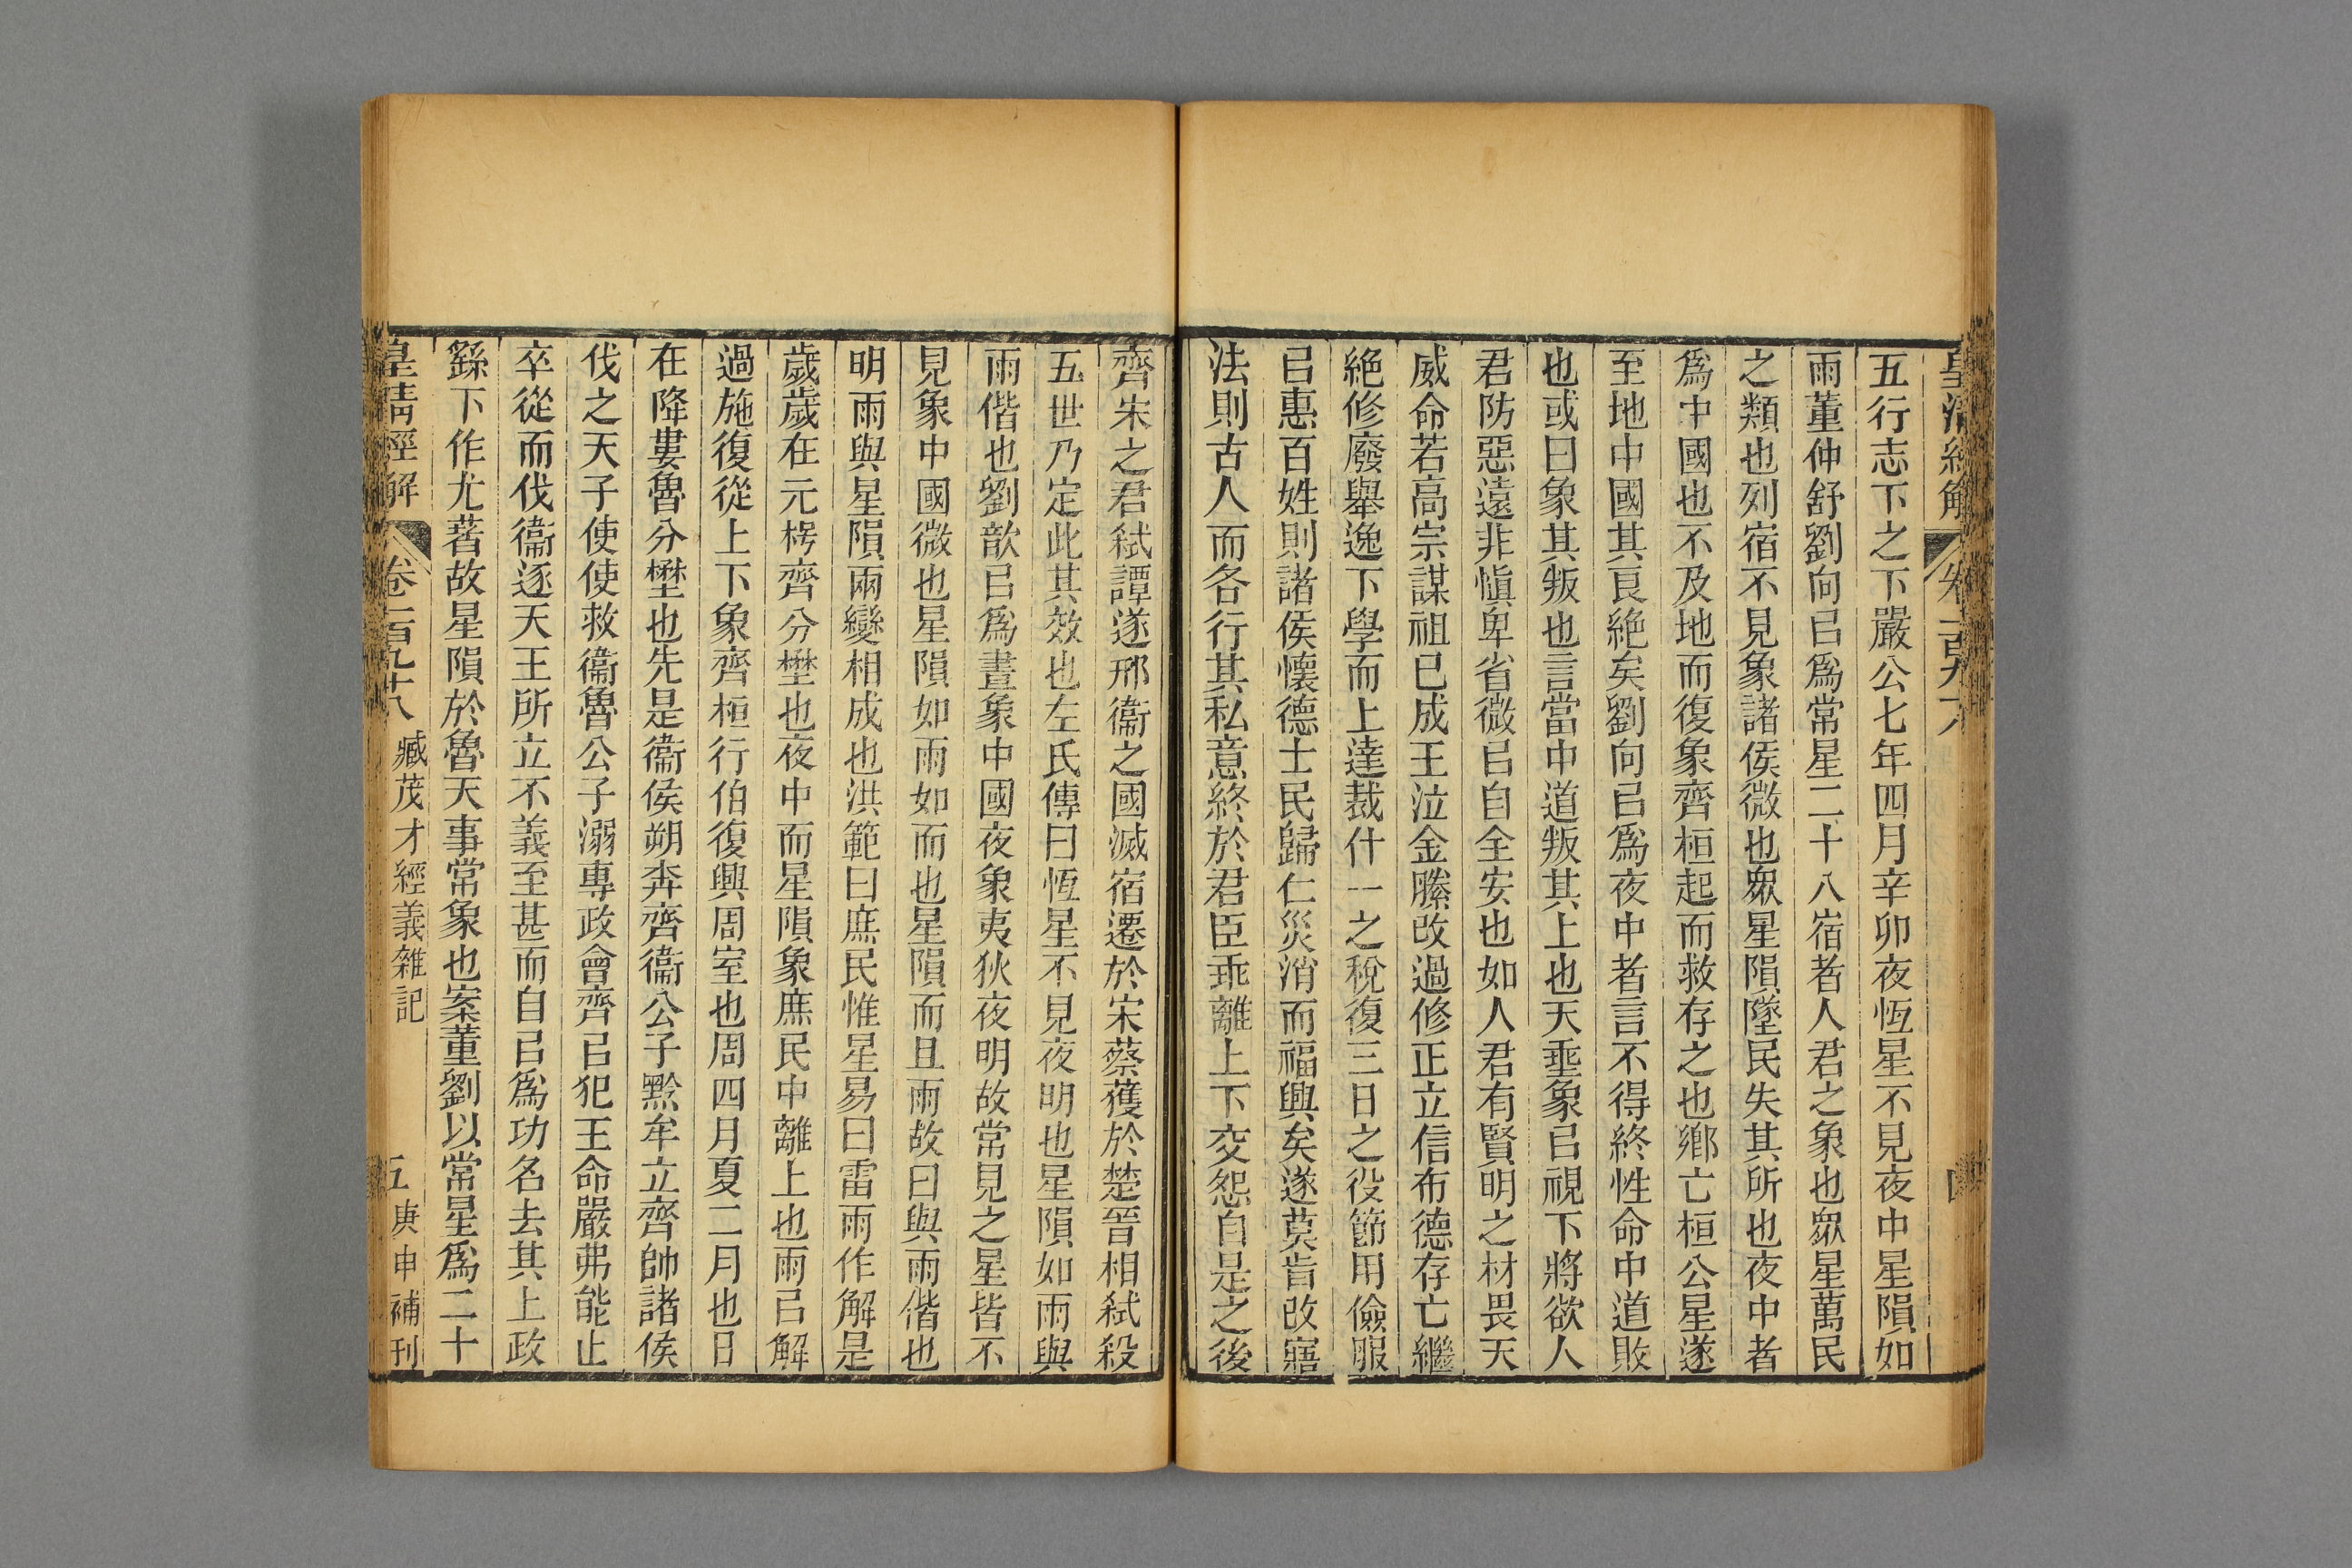 皇清經解 卷一百九十八 四
五行志下之下嚴公七年四月辛卯夜恆星不見夜中星隕如
雨董仲舒劉向㠯爲常星二十八宿者人君之象也眾星萬民
之類也列宿不見象諸侯微也眾星隕墜民失其所也夜中者
爲中國也不及地而復象齊桓起而救存之也鄉亡桓公星遂
至地中國其良絶矣劉向㠯爲夜中者言不得終性命中道敗
也或曰象其叛也言當中道叛其上也天垂象㠯視下將欲人
君防惡遠非愼卑省微㠯自全安也如人君有賢明之材畏天
威命若高宗謀祖已成王泣金縢改過修正立信布德存亡繼
絶修廢舉逸下學而上達裁什一之稅復三日之役節用儉服
㠯惠百姓則諸侯懷德士民歸仁災消而福興矣遂莫肯改寤
法則古人而各行其私意終於君臣乖離上下交怨自是之後
齊宋之君弒譚遂邢衞之國滅宿遷於宋蔡獲於楚晉相弒殺
五世乃定此其效也左氏傳曰恆星不見夜明也星隕如雨與
雨偕也劉歆㠯爲晝象中國夜象夷狄夜明故常見之星皆不
見象中國微也星隕如雨如而也星隕而且雨故曰與雨偕也
明雨與星隕兩變相成也洪範曰庶民惟星易曰雷雨作解是
歲歲在元枵齊分壄也夜中而星隕象庶民中離上也雨㠯解
過施復從上下象齊桓行伯復興周室也周四月夏二月也日
在降婁魯分壄也先是衞侯朔奔齊衞公子黔牟立齊帥諸侯
伐之天子使使救衞魯公子溺專政會齊㠯犯王命嚴弗能止
卒從而伐衞逐天王所立不義至甚而自㠯爲功名去其上政
繇下作尤著故星隕於魯天事常象也案董劉以常星爲二十
皇清經解 卷一百九十八 臧茂才經義雜記 五 庚申補刊